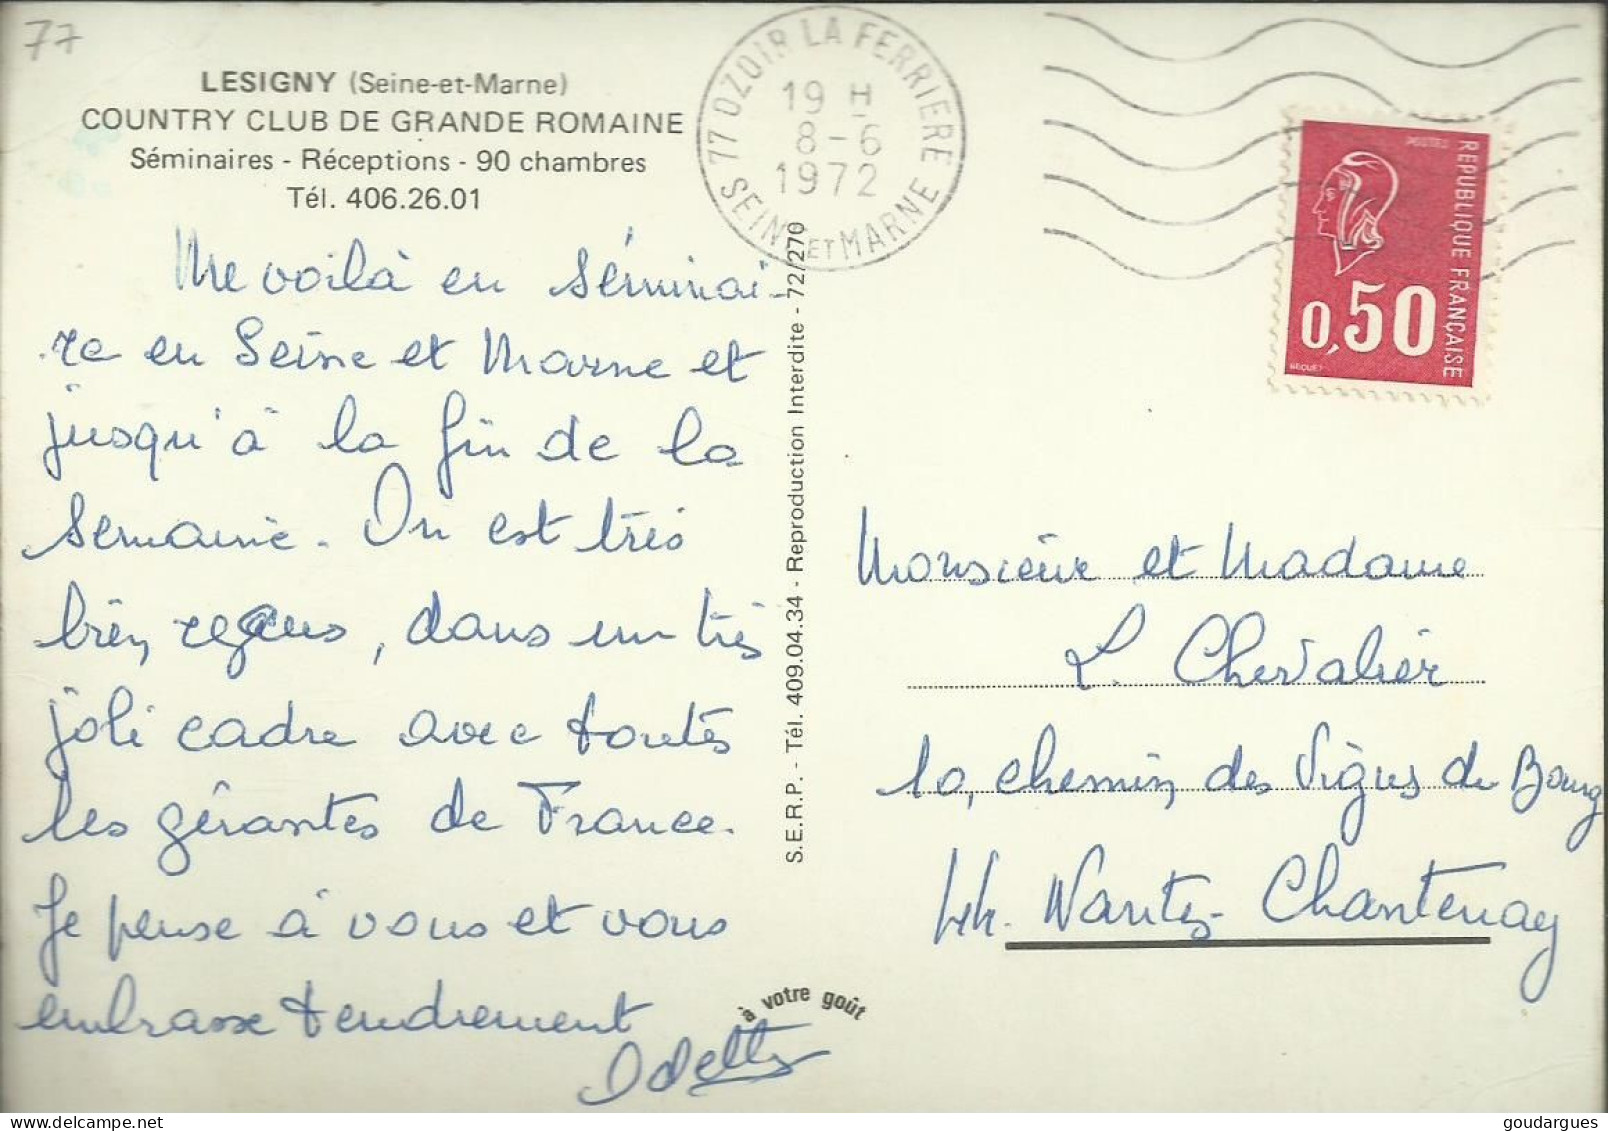 77
LESIGNY (Seine-et-Marne)
COUNTRY CLUB DE GRANDE ROMAINE
Séminaires - Réceptions - 90 chambres
Tél. 406.26.01
Me voilà en séminai-
re en Seine et Marne et
jusqu'à la fin de la
semaine. On est très
bien reçus, dans un très
joli cadre avec toutes
les gérantes de France.
Je pense à vous et vous
embrasse tendrement
Odette
S.E.R.P. - Tél. 409.04.34 - Reproduction Interdite - 72/270
à votre goût
77 OZOIR LA FERRIERE
19 H
8-6
1972
SEINE ET MARNE
POSTES
REPUBLIQUE FRANÇAISE
0,50
BEQUET
Monsieur et Madame
L. Chevalier
10, chemin des Vignes du Bourg
44. Nantes - Chantenay
goudargues@delcampe.net